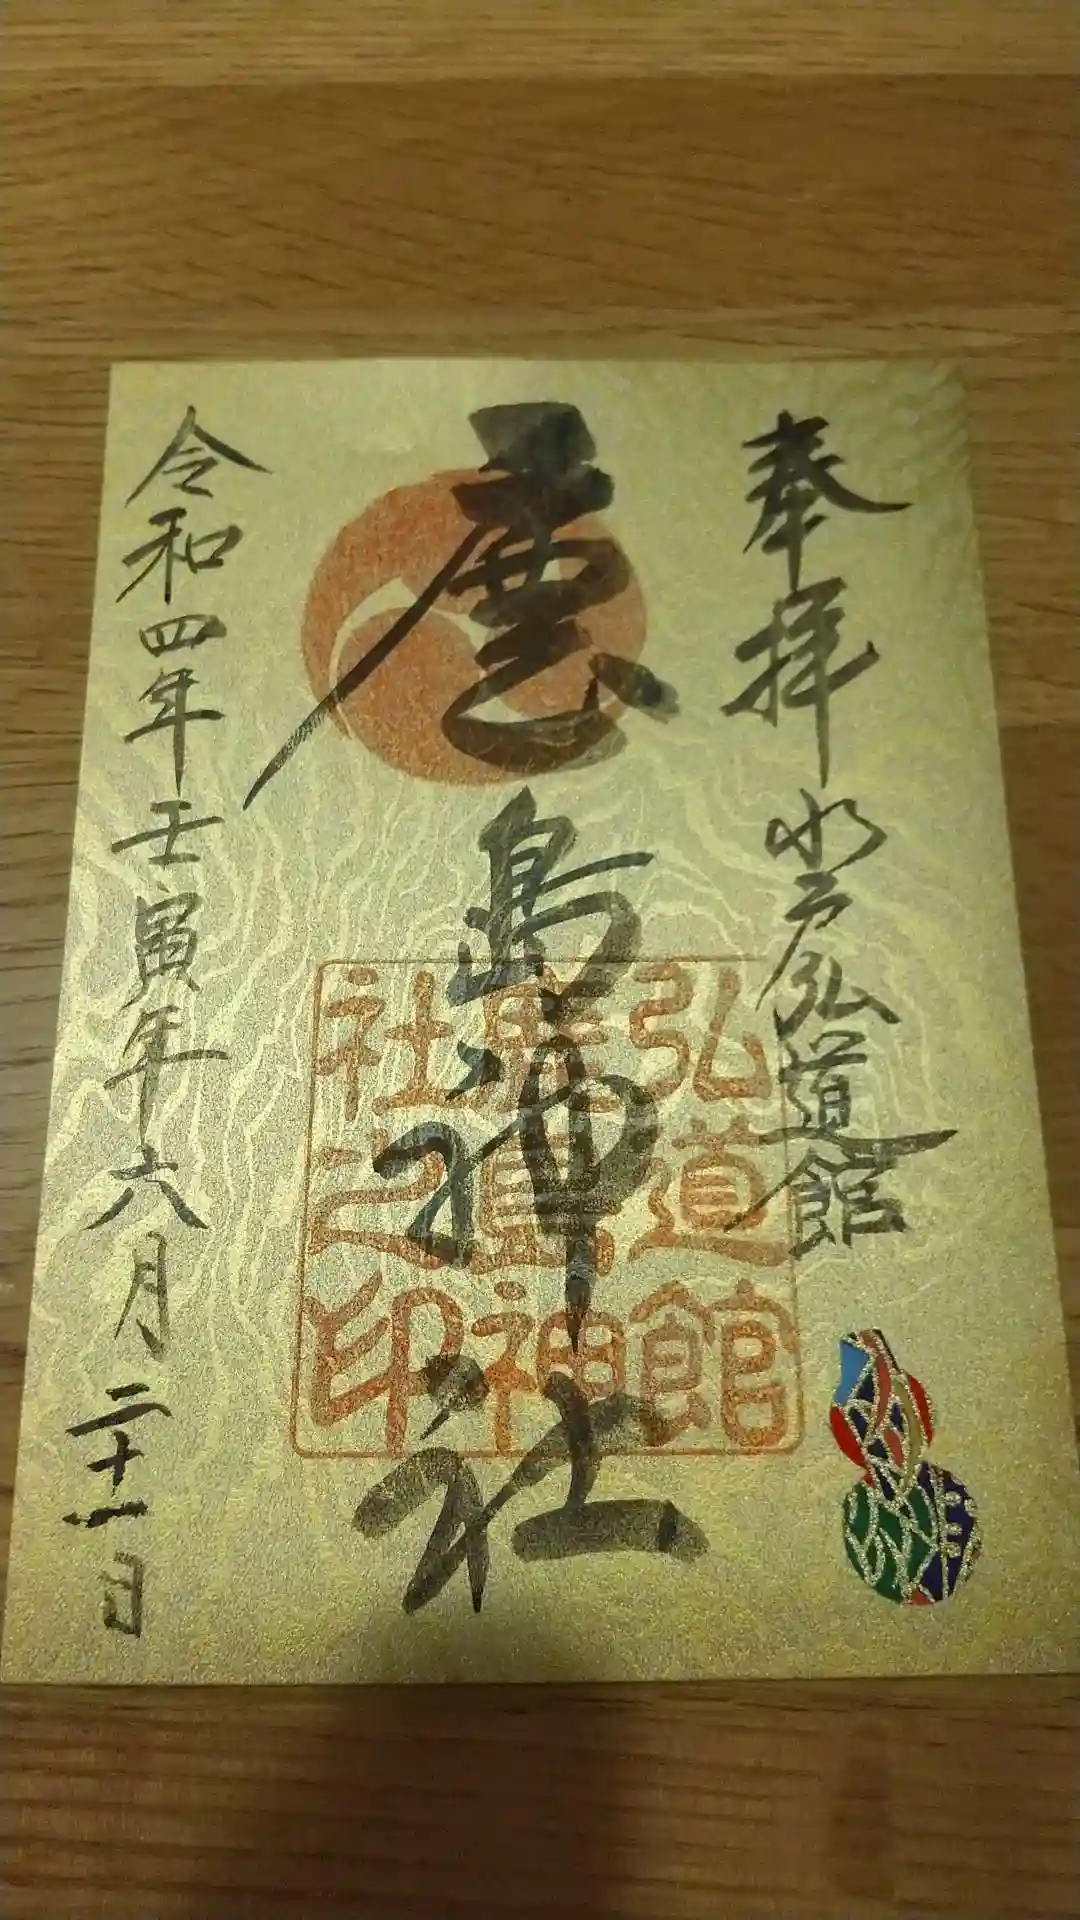 奉拝 水戸弘道館
鹿島神社
弘道館
鹿島神
社之印
令和四年壬寅年六月二十一日